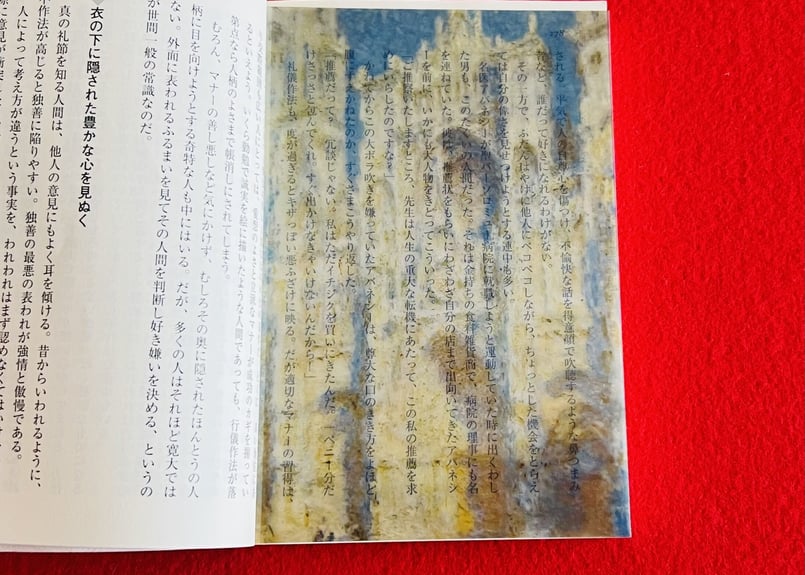 278
される。平気で人の自尊心を傷つけ、不愉快な話を得意顔で吹聴するような鼻つまみ
者など、誰だって好きになれるわけがない。
その一方で、ふだんはやけに他人にペコペコしながら、ちょっとした機会をとらえ
ては自分の偉さを見せつけようとする連中も多い。
名医アバネシーが聖バーソロミュー病院に就職しようと運動していた時に出くわし
た男も、このたぐいの人間だった。それは金持ちの食料雑貨商で、病院の理事にも名
を連ねていた。彼は、推薦状をもらいにわざわざ自分の店まで出向いてきたアバネシ
ーを前に、いかにも大人物をきどってこういった。
「ご推察いたしますところ、先生は人生の重大な転機にあたって、この私の推薦を求
めにいらしたのですな?」
かねてからこの大ボラ吹きを嫌っていたアバネシーは、尊大な口のきき方をよほど
腹にすえかねたのか、すぐさまこうやり返した。
「推薦だって? 冗談じゃない。私はただイチジクを買いにきたんだ。一ペニー分だ
けさっさと包んでくれ。すぐ出かけなきゃいけないんだから!」
礼儀作法も、度が過ぎるとキザっぽい悪ふざけに映る。だが適切なマナーの習得は、
るといえよう。いくら勤勉で誠実を絵に描いたような人間であっても、行儀作法が落
第点なら人柄のよさまで帳消しにされてしまう。
むろん、マナーの善し悪しなど気にかけず、むしろその奥に隠されたほんとうの人
柄に目を向けようとする奇特な人も中にはいる。だが、多くの人はそれほど寛大では
ない。外面に表われるふるまいを見てその人間を判断し好き嫌いを決める、というの
が世間一般の常識なのだ。
衣の下に隠された豊かな心を見ぬく
真の礼節を知る人間は、他人の意見にもよく耳を傾ける。昔からいわれるように、
作法が高じると独善に陥りやすい。独善の最悪の表われが強情と傲慢である。
人によって考え方が違うという事実を、われわれはまず認めなくてはいけ